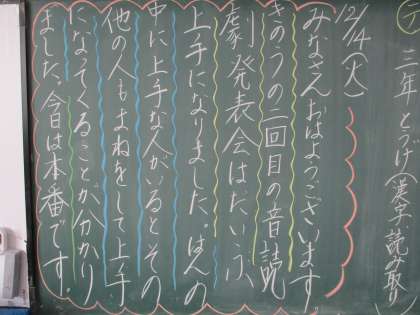 三年 とつげ(漢字、読み取り
12/14(火)
みなさんおはようございます。
きのうの二回目の音読
劇発表会はだいぶ、
上手になりました。はんの
中に上手な人がいるとその
他の人もまねをして上手
になってくることが分かり
ました。今日は本番です。